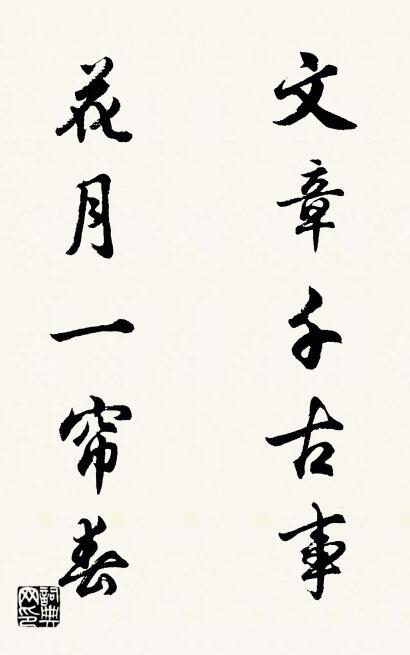 文章千古事
花月一帘春
詞典
网印